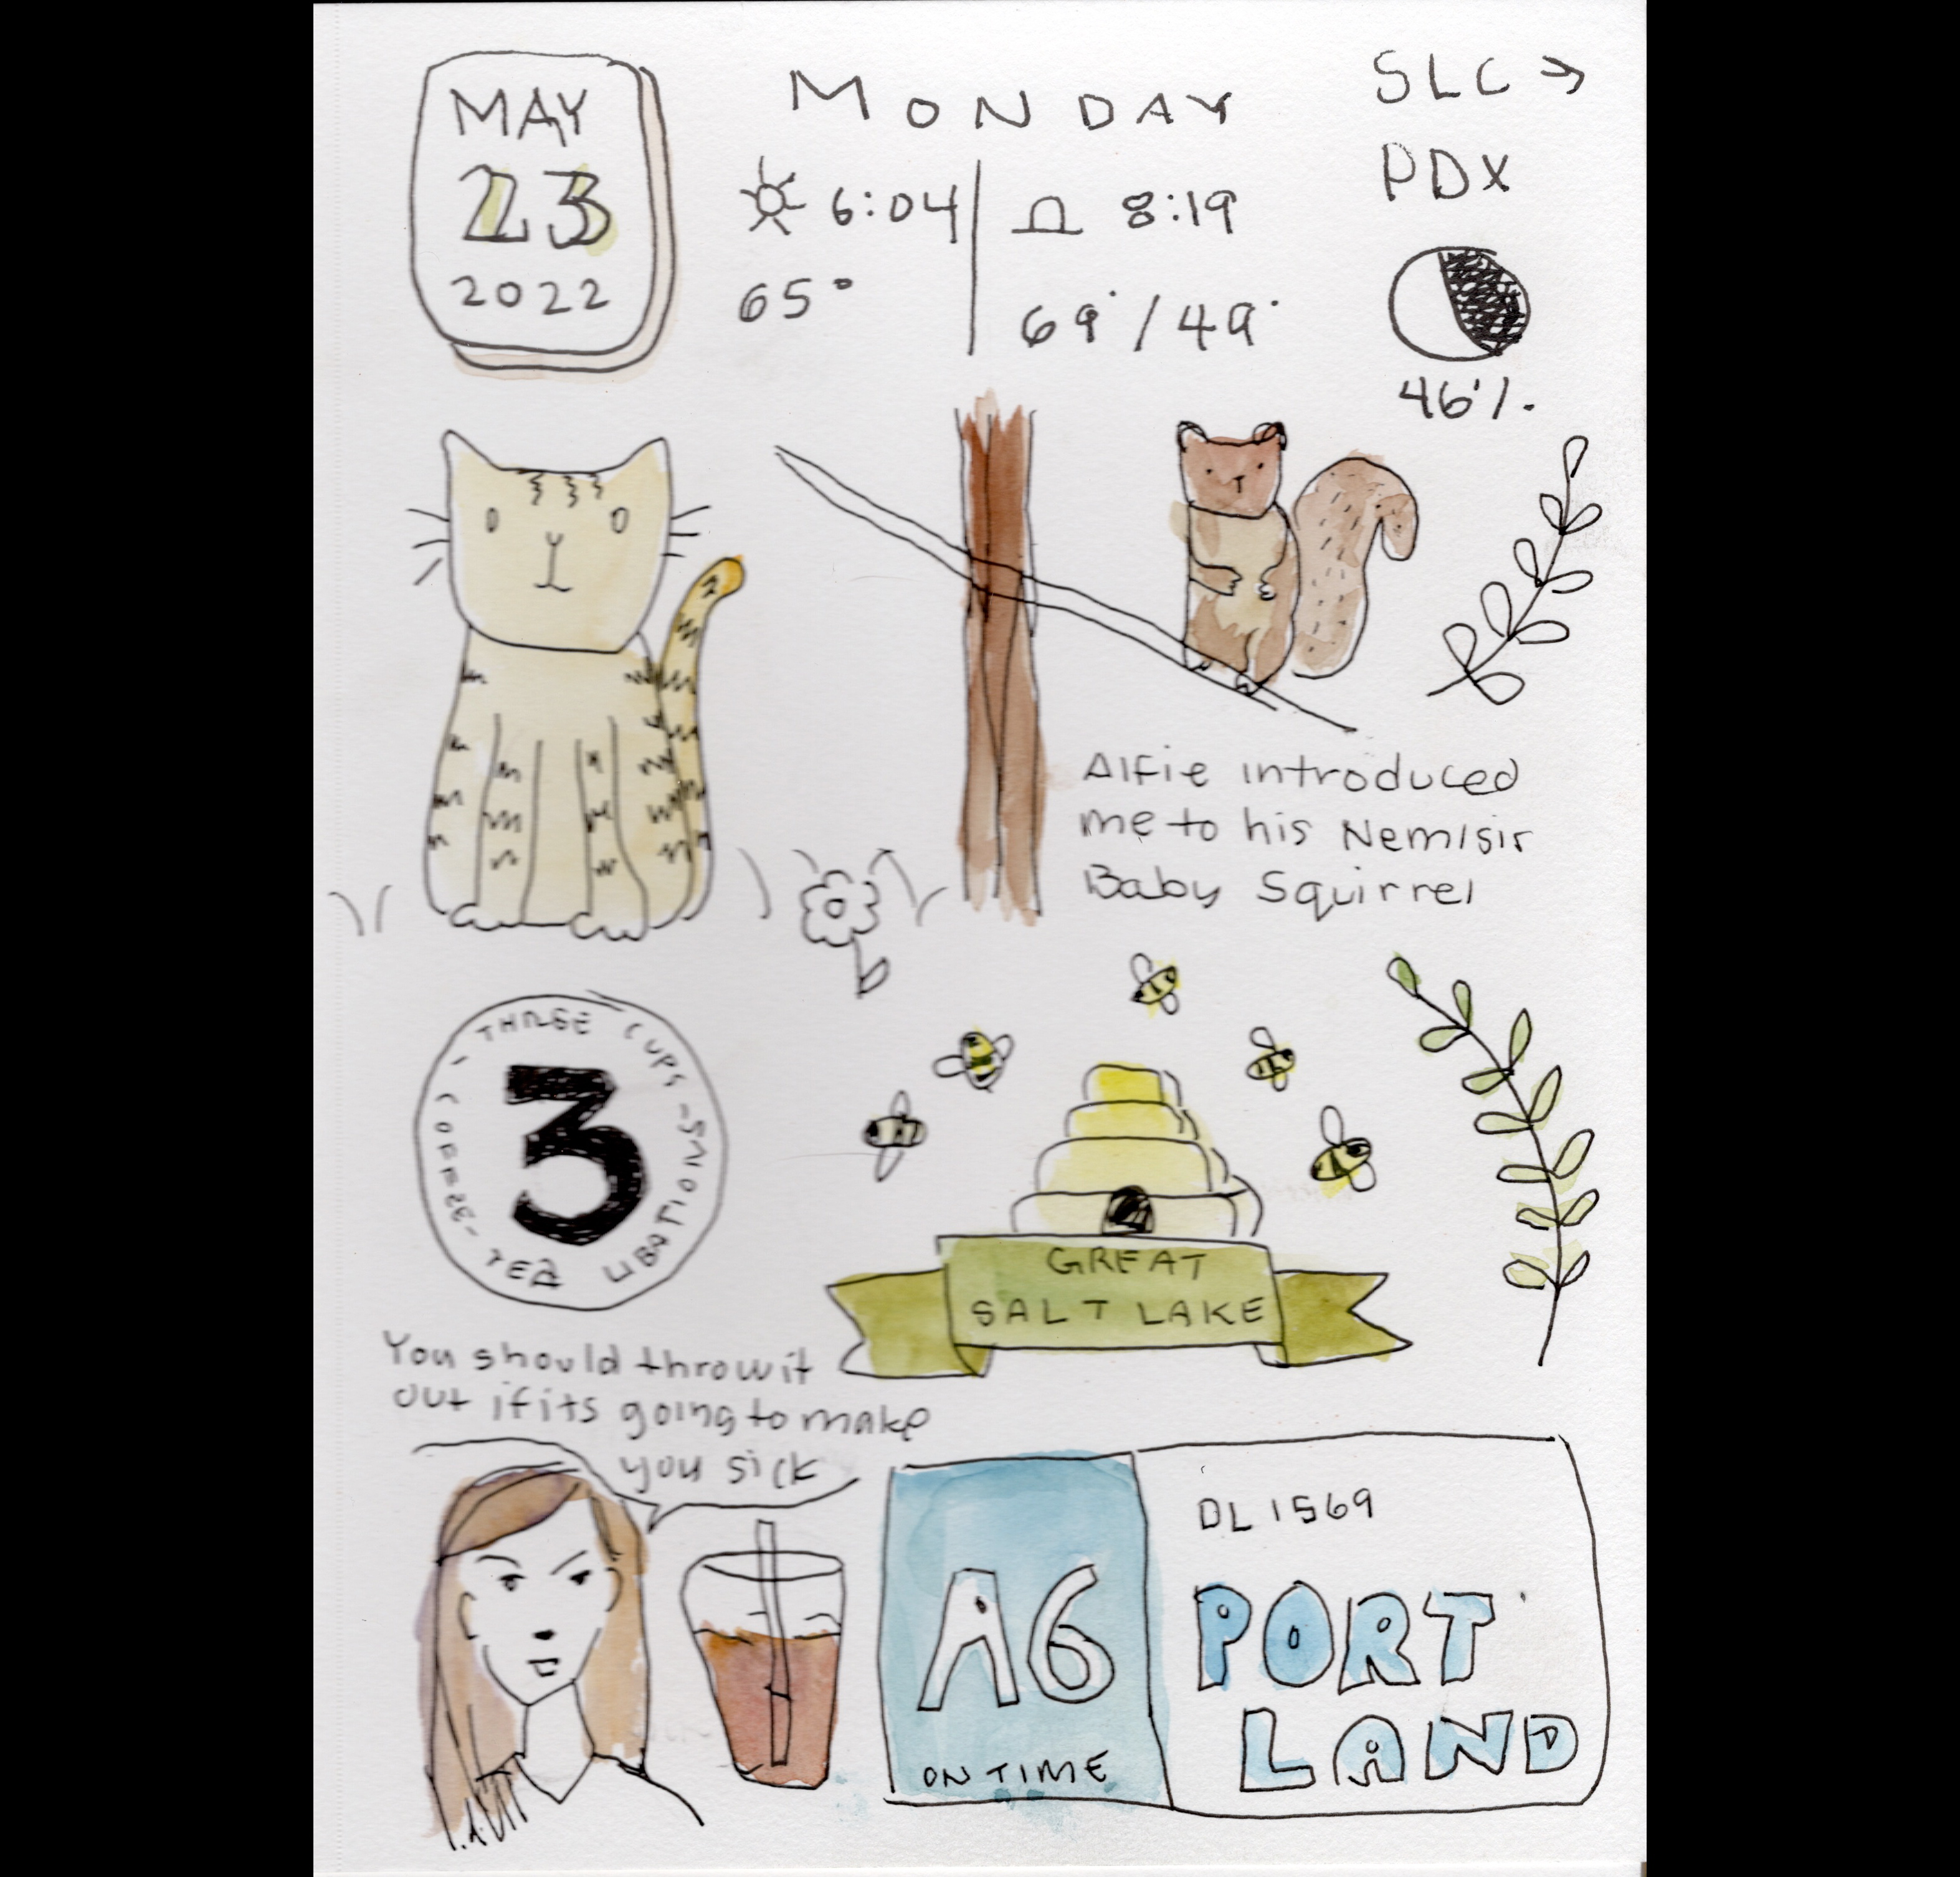 MAY
23
2022
MONDAY
6:04
8:19
65°
69°/49°
SLC →
PDX
46%
Alfie introduced
me to his Nemisis
Baby Squirrel
THREE CUPS - LIBATIONS - TEA - COFFEE -
3
GREAT
SALT LAKE
You should throw it
out if its going to make
you sick
A6
ON TIME
DL 1569
PORT
LAND